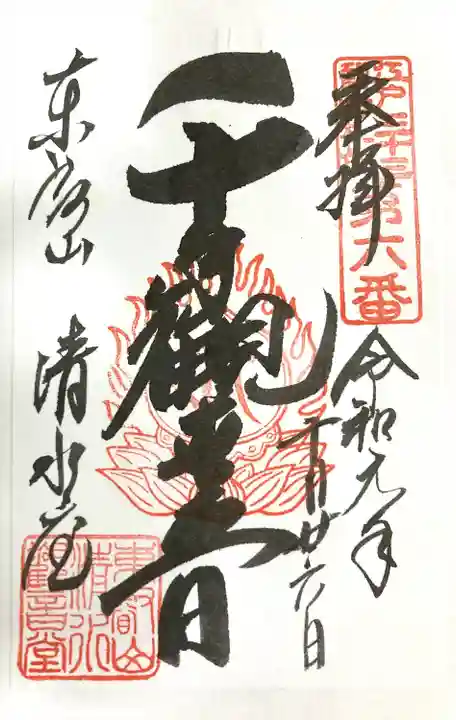 奉拝
江戸三十三 第六番
令和元年
月廿六日
千手觀音
東叡山 清水堂
東叡山
清水
觀音堂